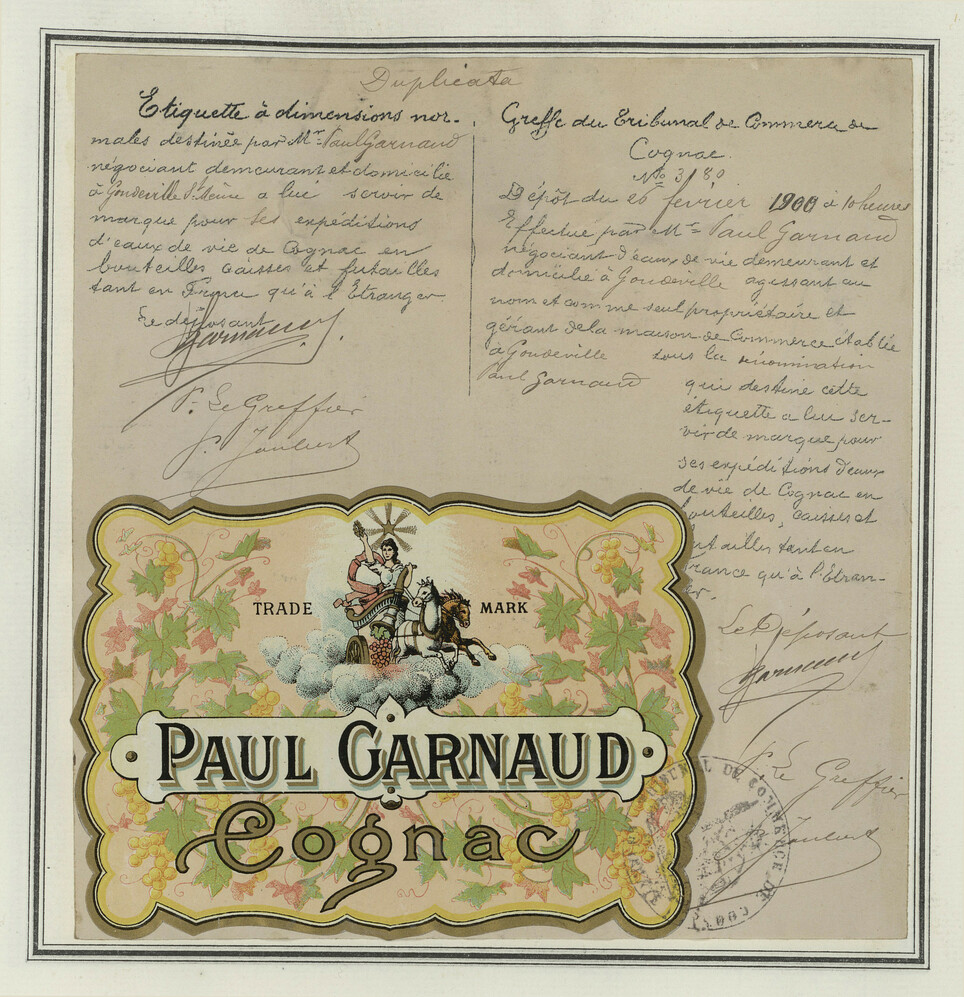 Duplicata
Etiquette à dimensions nor-
males destinée par Mr Paul Garnaud
négociant demeurant et domicilié
à Gondeville St Même a lui servir de
marque pour ses expéditions
d'eaux de vie de Cognac en
bouteilles caisses et futailles
tant en France qu'à l'Etranger.
Le déposant
Garnaud
P. Le Greffier
P. Joubert
Greffe du Tribunal de Commerce de
Cognac.
No 3180
Dépôt du 26 février 1900 à 10 heures
Effectué par Mr Paul Garnaud
négociant d'eaux de vie demeurant et
domicilié à Gondeville agissant au
nom et comme seul propriétaire et
gérant de la maison de Commerce établie
à Gondeville sous la dénomination
Paul Garnaud
qui destine cette
étiquette a lui ser-
vir de marque pour
ses expéditions d'eaux
de vie de Cognac en
bouteilles, caisses et
futailles tant en
France qu'à l'Etran-
ger.
Le Déposant
Garnaud
P. Le Greffier
P. Joubert
TRADE MARK
PAUL GARNAUD
Cognac
TRIBUNAL DE COMMERCE DE COGNAC